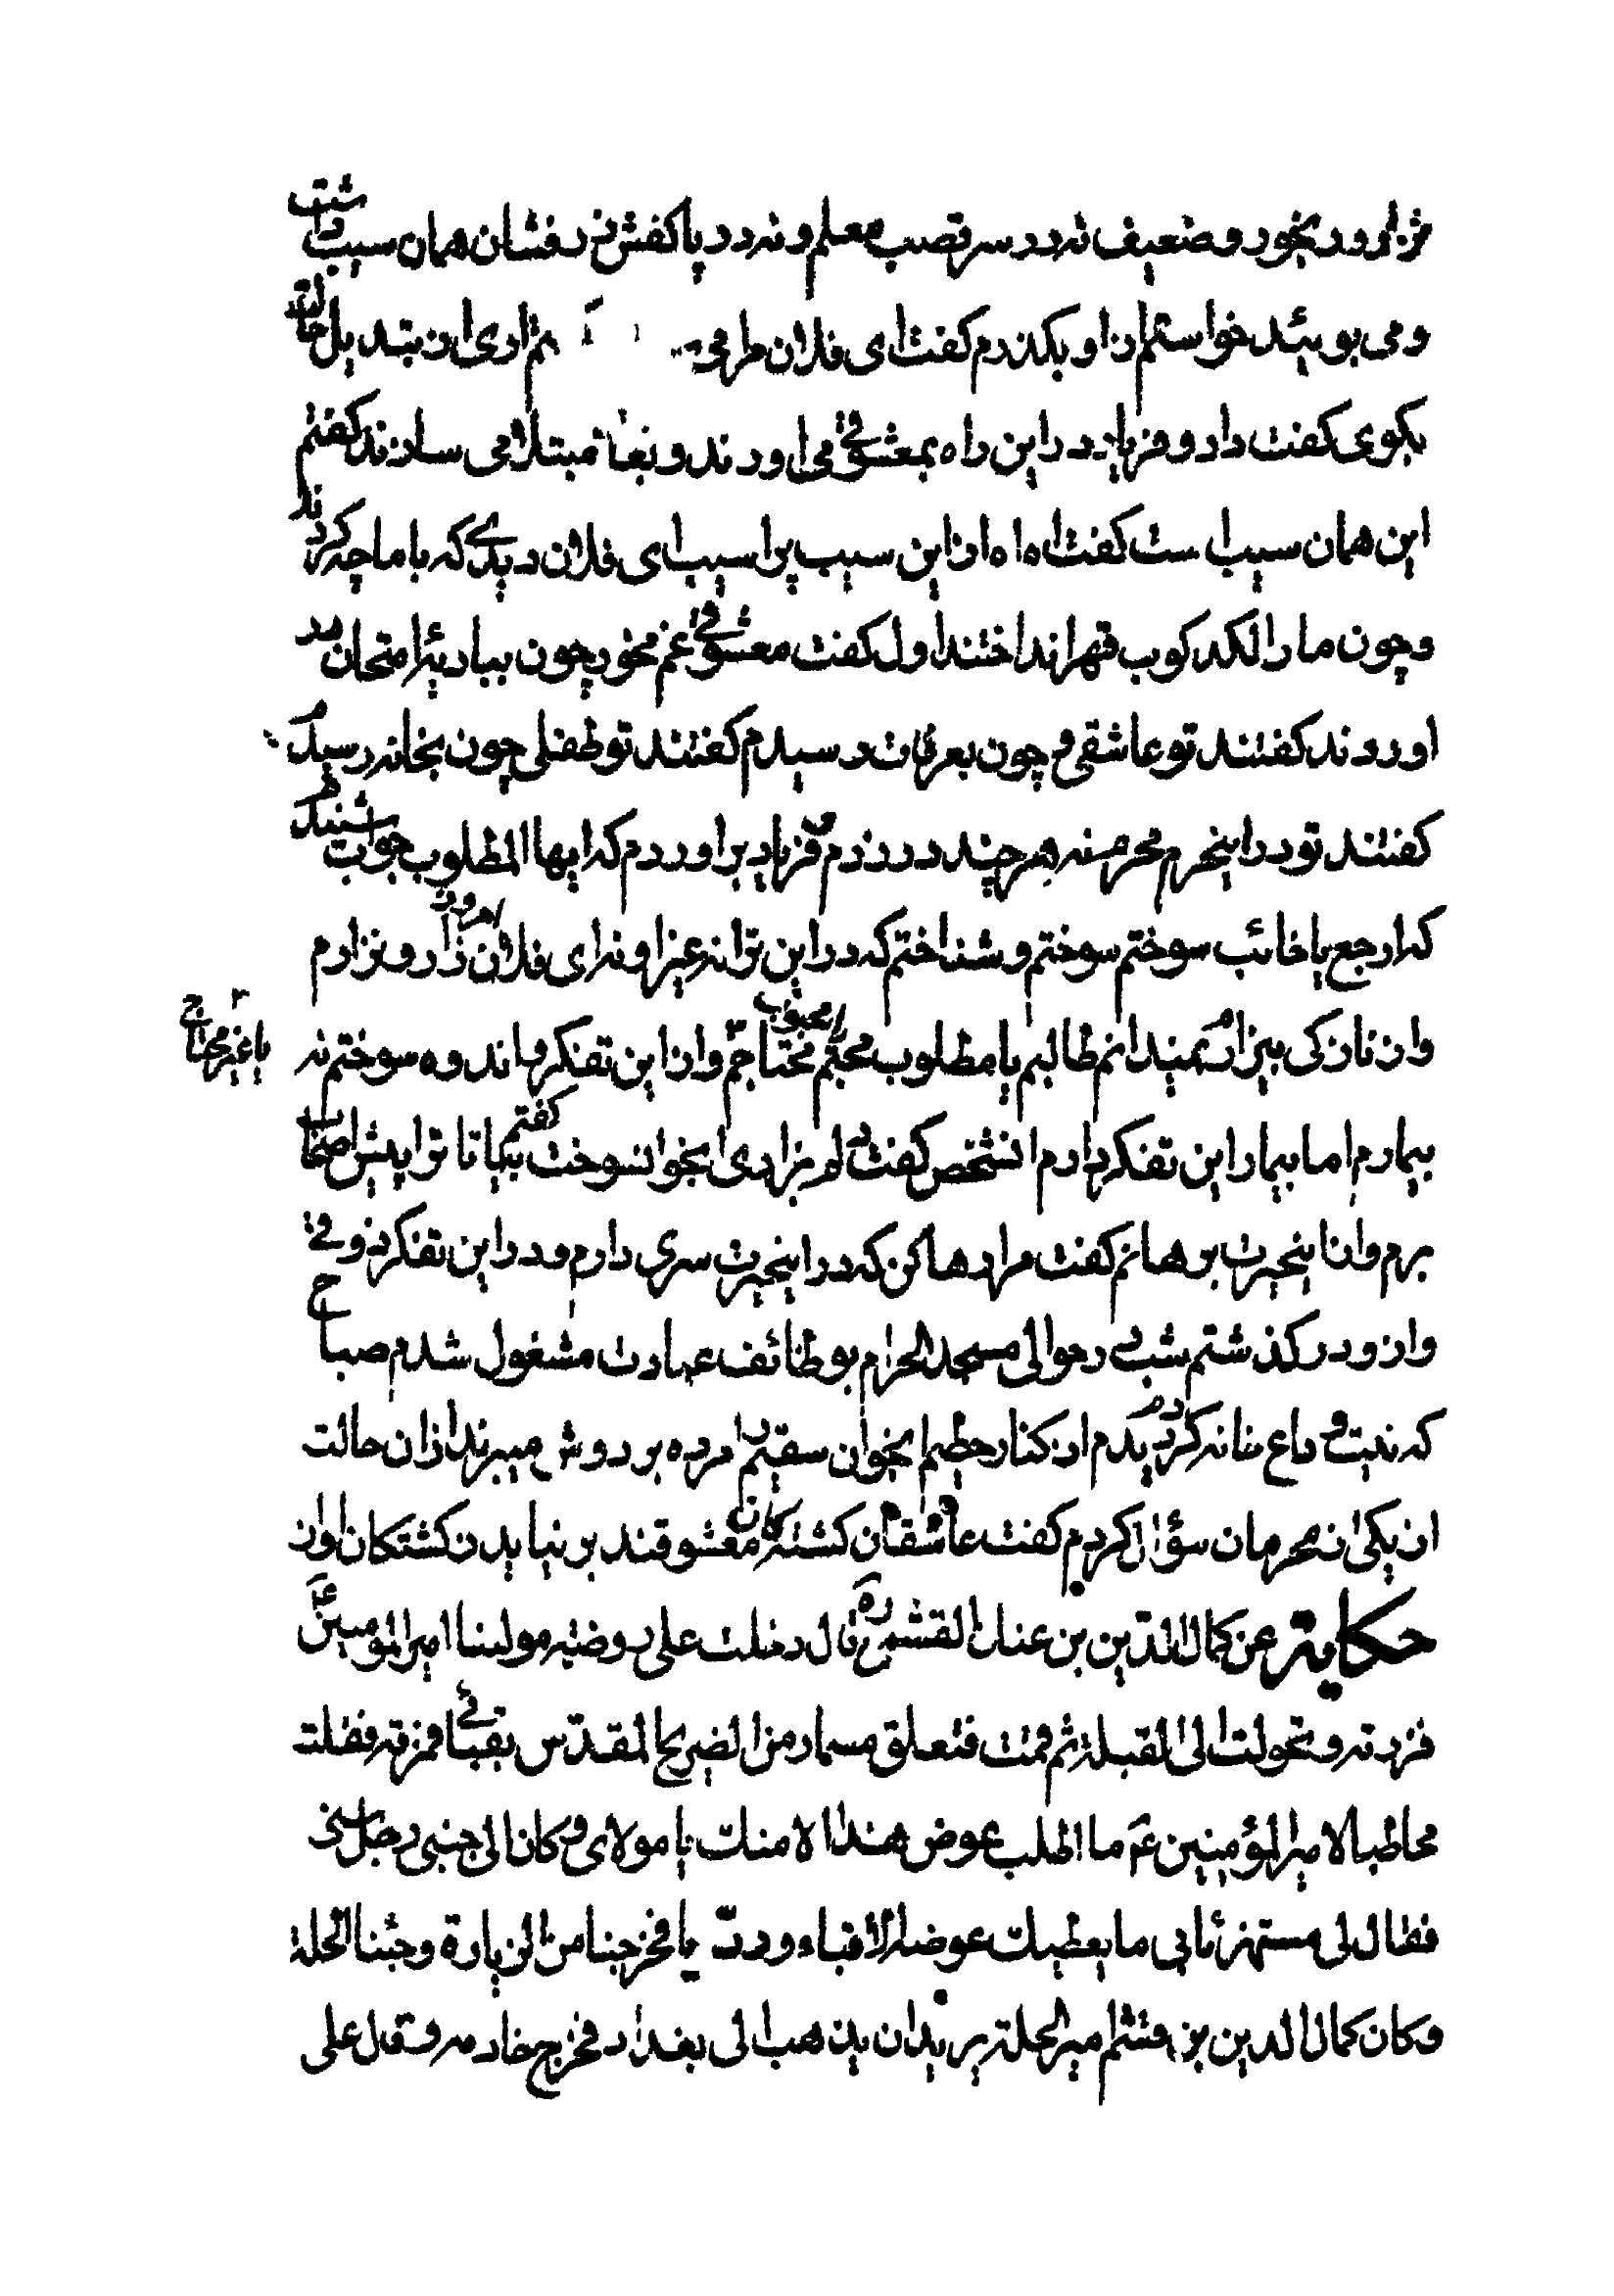 نزار و رنجور و ضعیف نه در سر قصب معلم و نه در پا کفش زرفشان همان سیب داشت
و می بوئید خواستم از او بگذرم کفت ای فلان مرا می نم اری از تبدیل حالت
بکوی کفت دار و فریاد در این راه بمعشوقی می اورند و بغا مبتلا می سازند کفتم
این همان سیب است کفت اه اه از این سیب پر اسیب ای فلان دیدی که با ما چه کردند
و چون ما را لکد کوب قهر انداختند اول کفت معشوقی غم مخور چون ببادیه امتحان در
اوردند کفتند تو عاشقی و چون بعرفات رسیدم کفتند تو طفلی چون بخانه رسیدم
کفتند تو در اینحرم محرم نه هر چند در زدم و فریاد براوردم که ایها المطلوب جواب شنیدم
که ارجع یا خائب سوختم سوختم و شناختم که در این ترانه غیر او نه ای فلان زار و نزارم
و از نازکی بیزارم نمیدانم طالبم یا مطلوب محبم یا محبوب محتاجم و از این تفکر و اندوه سوختم نه
یا غیر محتاج
بیمارم اما بیمار این تفکر دارم انشخص کفت دلم بزاری انجوان سوخت کفتم بیا تا ترا پیش اصحاب
برم و از اینحیرت برهانم کفت مرا رها کن که در اینحیرت سری دارم و در این تفکر ذوقی
و از و در کذشتم شب در حوالی مسجد الحرام بوظائف عبادت مشغول شدم صباح
که نیت وداع خانه کردم دیدم از کنار حطیم انجوان سقیم را مرده بر دوش میبرند از ان حالت
از یکی از محرمان سؤال کردم کفت عاشقان کشته کان معشوقند بر نیاید ز کشتکان اواز
حکایة عن کمال الدین بن عنان القشمی ره قال دخلت علی روضه مولینا امیر المومنین ع
فزرته و تحولت الی القبلة ثم قمت فتعلق مسمار من الضریح المقدس بقبائی فمزقه فقلت
مخاطبا لامیر المؤمنین ع ما اطلب عوض هذا الا منک یا مولای و کان الی جنبی رجل سنی
فقال لی مستهزئا بی ما یعطیک عوضه الا قباء وردیا فخرجنا من الزیارة و جئنا الحلة
و کان کمال الدین بن قشتم امیر الحلة یرید ان یذهب الی بغداد فخرج خادمه و قال علی